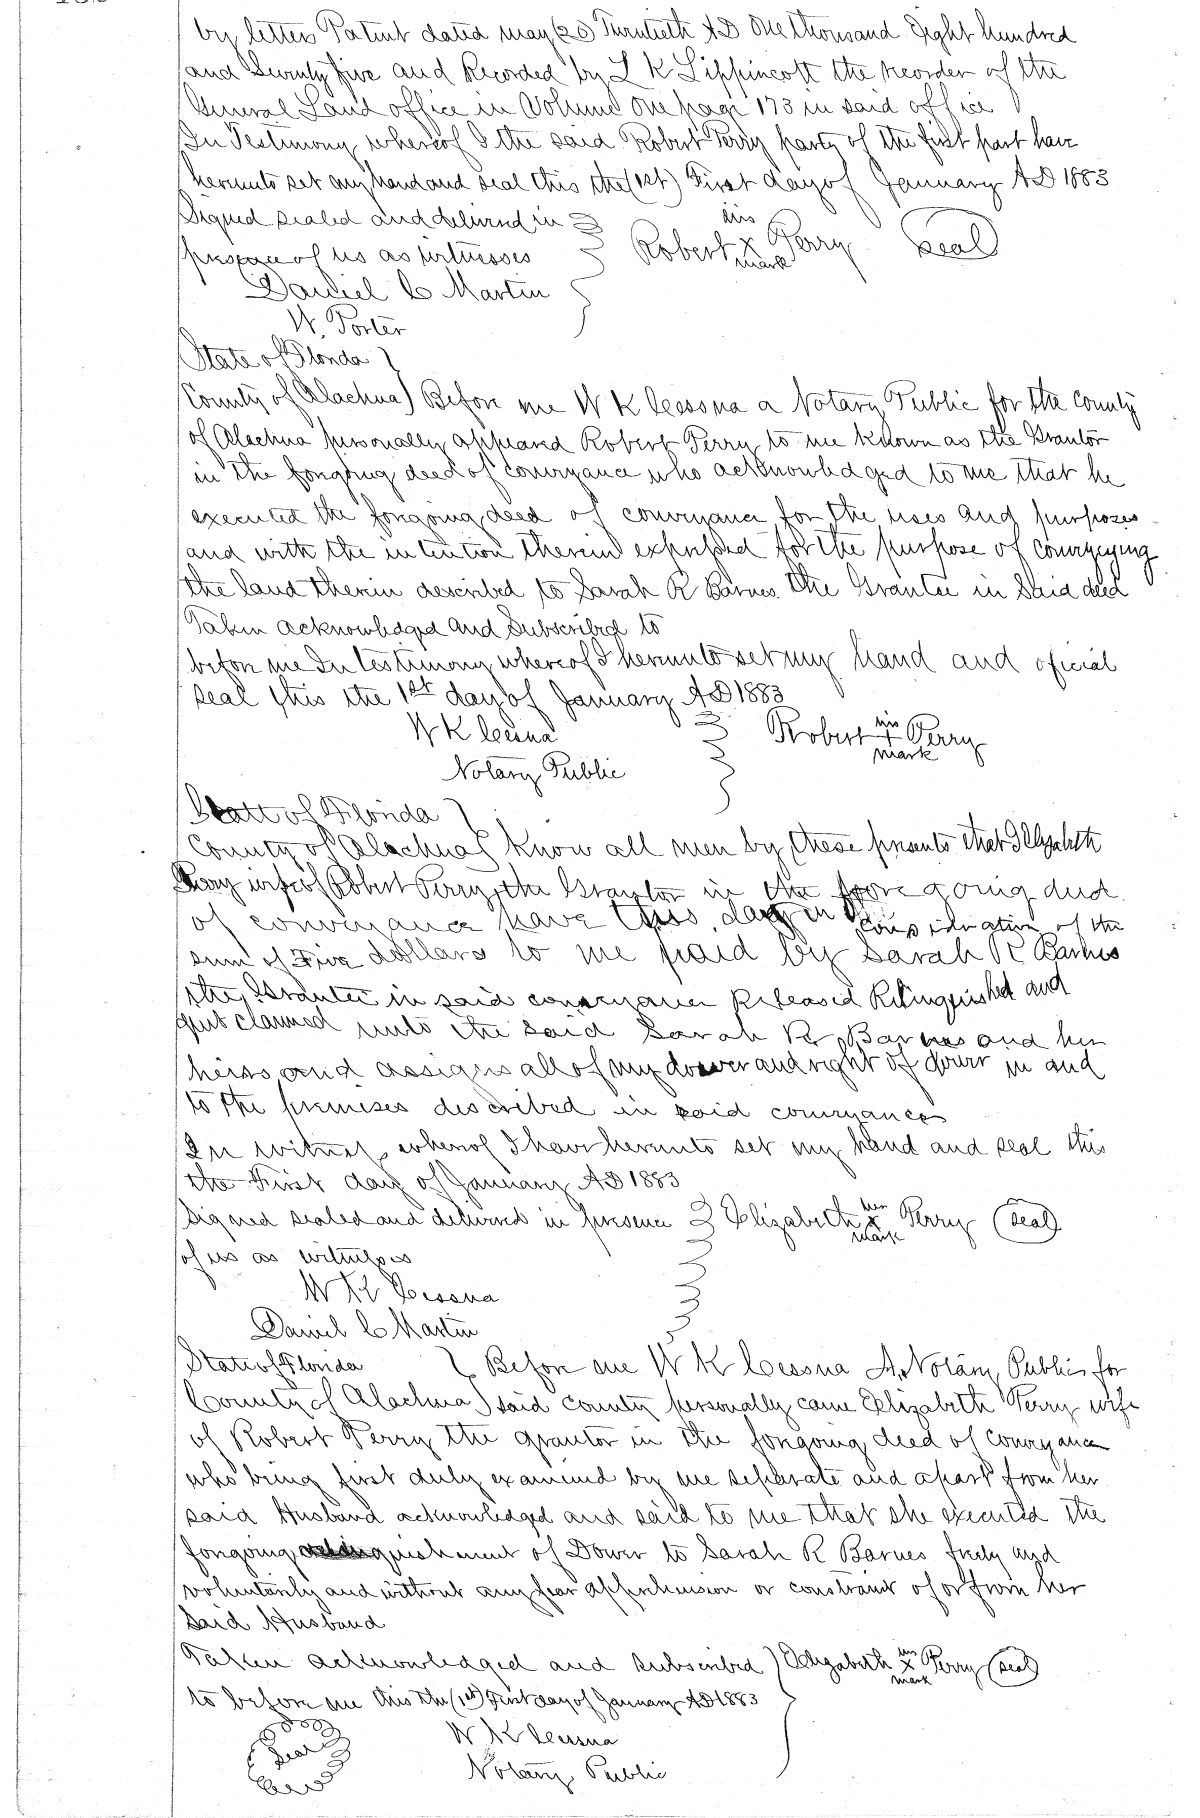 by letters Patent dated may (20) Twentieth AD One thousand Eight hundred
and Seventy five and Recorded by L K Lippincott the recorder of the
General Land office in Volume One page 173 in said office
In Testimony whereof I the said Robert Perry party of the first part have
hereunto set my hand and seal this the (1st) First day of January AD 1883
Signed sealed and delivered in
his
presence of us as witnesses Robert x Perry seal
mark
Daniel C Martin
W. Porter
State of Florida
County of Alachua) Before me W K Cessna a Notary Public for the county
of Alachua personally appeared Robert Perry to me known as the Grantor
in the forgoing deed of conveyance who acknowledged to me that he
executed the forgoing deed of conveyance for the uses and purposes
and with the intention therein expressed for the purpose of conveyeying
the land therein described to Sarah R Barnes the Grantee in Said deed
Taken acknowledged and Subscribed to
before me In testimony whereof I hereunto set my hand and oficial
seal this the 1st day of January AD 1883
W K Cessna Robert his + mark Perry
Notary Public
State of Florida
County of Alachua know all men by these presents that I Elizabeth
Perry wife of Robert Perry the Grantor in the fore going deed
of conveyance have this day in consideration of the
sum of Five dollars to me paid by Sarah R Barnes
the Grantee in said conveyance Released Relinquished and
quit claimed unto the said Sarah R Barnes and her
heirs and assigns all of my dower and right of dower in and
to the premises described in said conveyance
In witness whereof I have hereunto set my hand and seal this
the First day of January AD 1883
Signed sealed and delivered in presence Elizabeth her x mark Perry (seal)
of us as witnesses
W K Cessna
Daniel C Martin
State of Florida Before me W K Cessna A Notary Public for
County of Alachua) said county personally came Elizabeth Perry wife
of Robert Perry the grantor in the forgoing deed of conveyance
who being first duly examined by me separate and apart from her
said Husband acknowledged and said to me that she executed the
forgoing relinquishment of Dower to Sarah R Barnes freely and
voluntarily and without any fear apprehension or constraint of or from her
Said Husband
Taken acknowledged and subscribed Elizabeth x mark Perry (seal)
to before me this the (1st) First day of January AD 1883
Seal W K Cessna
Notary Public